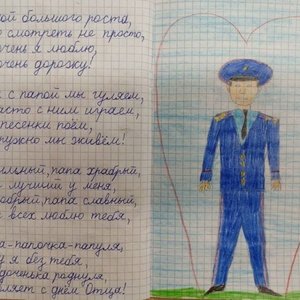 ой большого роста,
о смотреть не просто,
чень я люблю,
очень дорожу!
с папой мы гуляем,
асто с ним играем,
песенки поём,
ружно мы живём!
ильный, папа храбрый,
лучший у меня,
обрый, папа славный,
всех люблю тебя,
а-папочка-папуля,
у я без тебя,
доченька роднуля,
ляет с днём Отца!